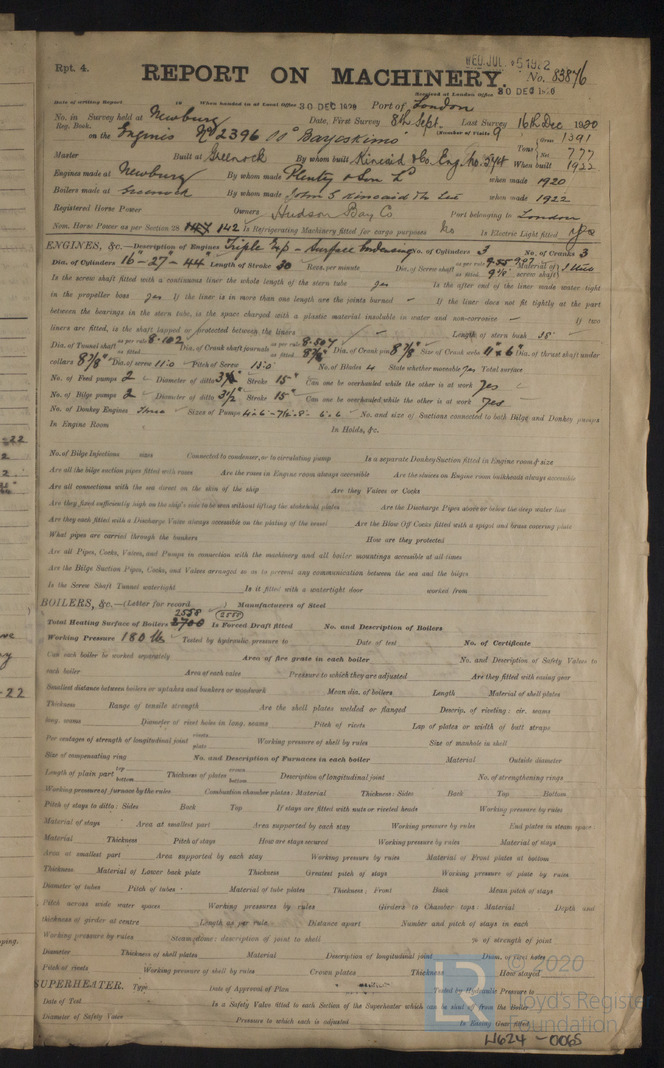 WED. JUL. 5 1922
Rpt. 4.
REPORT ON MACHINERY.
No. 83876
Received at London Office 30 DEC 1920
Date of writing Report 19 When handed in at Local Office 30 DEC 1920 Port of London
No. in Survey held at Newbury Date, First Survey 8th Sept. Last Survey 16th Dec 1920
Reg. Book. (Number of Visits 9
on the Engines No 2396 SS "Bayeskimo" Tons Gross 1391 Net 777
Master Built at Greenock By whom built Kincaid & Co Eng. No. When built 1922
Engines made at Newbury By whom made Plenty & Son Ld when made 1920
Boilers made at Greenock By whom made John G Kincaid & Co Ltd when made 1922
Registered Horse Power Owners Hudson Bay Co Port belonging to London
Nom. Horse Power as per Section 28 142 Is Refrigerating Machinery fitted for cargo purposes No Is Electric Light fitted Yes
ENGINES, &c.—Description of Engines Triple Exp - Surface Condensing No. of Cylinders 3 No. of Cranks 3
Dia. of Cylinders 16"-27"-44" Length of Stroke 30 Revs. per minute Dia. of Screw shaft as per rule as fitted 9 1/8" Material of screw shaft
Is the screw shaft fitted with a continuous liner the whole length of the stern tube yes Is the after end of the liner made water tight
in the propeller boss yes. If the liner is in more than one length are the joints burned — If the liner does not fit tightly at the part
between the bearings in the stern tube, is the space charged with a plastic material insoluble in water and non-corrosive — If two
liners are fitted, is the shaft lapped or protected between the liners — Length of stern bush 38"
Dia. of Tunnel shaft as per rule 8.102 as fitted Dia. of Crank shaft journals as per rule 8.507 as fitted 8 7/8" Dia. of Crank pin 8 7/8" Size of Crank webs 11" x 6" Dia. of thrust shaft under
collars 8 7/8" Dia. of screw 11.0 Pitch of Screw 13.0 No. of Blades 4 State whether moveable yes Total surface
No. of Feed pumps 2 Diameter of ditto Stroke 15" Can one be overhauled while the other is at work Yes
No. of Bilge pumps 2 Diameter of ditto 3 1/2" Stroke 15" Can one be overhauled while the other is at work Yes
No. of Donkey Engines Three Sizes of Pumps No. and size of Suctions connected to both Bilge and Donkey pumps
In Engine Room In Holds, &c.
No. of Bilge Injections sizes Connected to condenser, or to circulating pump Is a separate Donkey Suction fitted in Engine room & size
Are all the bilge suction pipes fitted with roses Are the roses in Engine room always accessible Are the sluices on Engine room bulkheads always accessible
Are all connections with the sea direct on the skin of the ship Are they Valves or Cocks
Are they fixed sufficiently high on the ship's side to be seen without lifting the stokehold plates Are the Discharge Pipes above or below the deep water line
Are they each fitted with a Discharge Valve always accessible on the plating of the vessel Are the Blow Off Cocks fitted with a spigot and brass covering plate
What pipes are carried through the bunkers How are they protected
Are all Pipes, Cocks, Valves, and Pumps in connection with the machinery and all boiler mountings accessible at all times
Are the Bilge Suction Pipes, Cocks, and Valves arranged so as to prevent any communication between the sea and the bilges
Is the Screw Shaft Tunnel watertight Is it fitted with a watertight door worked from
BOILERS, &c.—(Letter for record ) Manufacturers of Steel
2558 (2558)
Total Heating Surface of Boilers 2700 Is Forced Draft fitted No. and Description of Boilers
Working Pressure 180 lb Tested by hydraulic pressure to Date of test No. of Certificate
Can each boiler be worked separately Area of fire grate in each boiler No. and Description of Safety Valves to
each boiler Area of each valve Pressure to which they are adjusted Are they fitted with easing gear
Smallest distance between boilers or uptakes and bunkers or woodwork Mean dia. of boilers Length Material of shell plates
Thickness Range of tensile strength Are the shell plates welded or flanged Descrip. of riveting: cir. seams
long. seams Diameter of rivet holes in long. seams Pitch of rivets Lap of plates or width of butt straps
Per centages of strength of longitudinal joint rivets plate Working pressure of shell by rules Size of manhole in shell
Size of compensating ring No. and Description of Furnaces in each boiler Material Outside diameter
Length of plain part top bottom Thickness of plates crown bottom Description of longitudinal joint No. of strengthening rings
Working pressure of furnace by the rules Combustion chamber plates: Material Thickness: Sides Back Top Bottom
Pitch of stays to ditto: Sides Back Top If stays are fitted with nuts or riveted heads Working pressure by rules
Material of stays Area at smallest part Area supported by each stay Working pressure by rules End plates in steam space:
Material Thickness Pitch of stays How are stays secured Working pressure by rules Material of stays
Area at smallest part Area supported by each stay Working pressure by rules Material of Front plates at bottom
Thickness Material of Lower back plate Thickness Greatest pitch of stays Working pressure of plate by rules
Diameter of tubes Pitch of tubes Material of tube plates Thickness: Front Back Mean pitch of stays
Pitch across wide water spaces Working pressures by rules Girders to Chamber tops: Material Depth and
thickness of girder at centre Length as per rule Distance apart Number and pitch of stays in each
Working pressure by rules Steam dome: description of joint to shell % of strength of joint
Diameter Thickness of shell plates Material Description of longitudinal joint Diam. of rivet holes
Pitch of rivets Working pressure of shell by rules Crown plates Thickness How stayed
SUPERHEATER. Type Date of Approval of Plan Tested by Hydraulic Pressure to
Date of Test Is a Safety Valve fitted to each Section of the Superheater which can be shut off from the Boiler
Diameter of Safety Valve Pressure to which each is adjusted Is Easing Gear fitted
© 2020
Lloyd's Register
Foundation
W624-0065